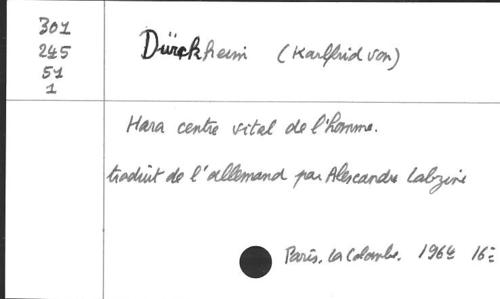 301
245
51
1
Dürckheim (Karlfrid von)
Hara centre vital de l'homme.
traduit de l'allemand par Alexandre
Paris. La Colombe. 1964 16=